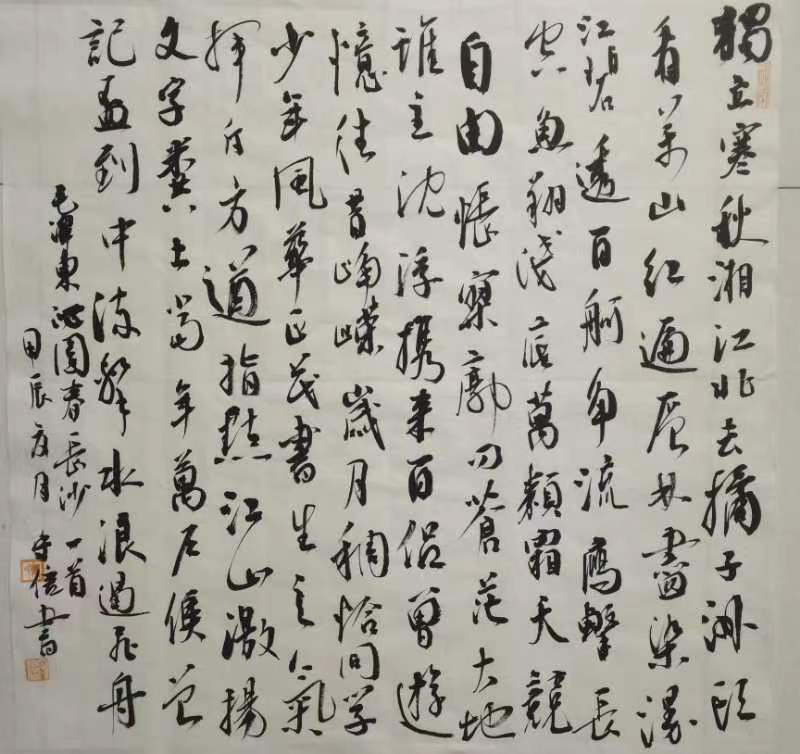 獨立寒秋湘江北去橘子洲頭
看萬山紅遍層林盡染漫
江碧透百舸爭流鷹擊長
空魚翔淺底萬類霜天競
自由悵寥廓問蒼茫大地
誰主沈浮携來百侶曾遊
憶往昔崢嶸歲月稠恰同学
少年風華正茂書生意氣
揮斥方遒指點江山激揚
文字糞土當年萬戶侯曾
記否到中流擊水浪遏飛舟
毛澤東沁園春長沙一首
甲辰夏月守信書